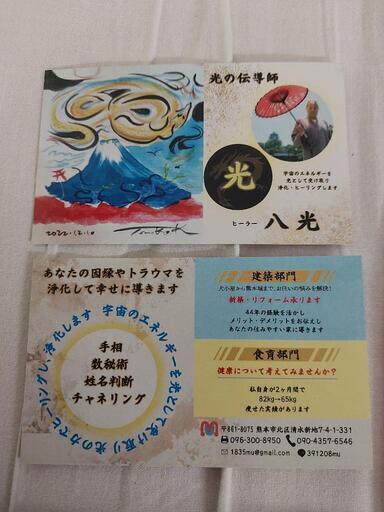 光の伝導師
光
宇宙のエネルギーを
光として受け取り
浄化・ヒーリングします
ヒーラー 八光
2022.12.10
あなたの因縁やトラウマを
浄化して幸せに導きます
宇宙のエネルギーを光として受け取り 光の力でヒーリングし、浄化します
手相
数秘術
姓名判断
チャネリング
建築部門
犬小屋から熊本城まで、お住いの悩みを解決!
新築・リフォーム承ります
44年の経験を活かし
メリット・デメリットをお伝えし
あなたの住みやすい家に導きます
食育部門
健康について考えてみませんか?
私自身が2ヶ月間で
82kg→65kg
痩せた実績があります
〒861-8075 熊本市北区清水新地7-4-1-331
096-300-8950 090-4357-6546
1835mu@gmail.com 391208mu